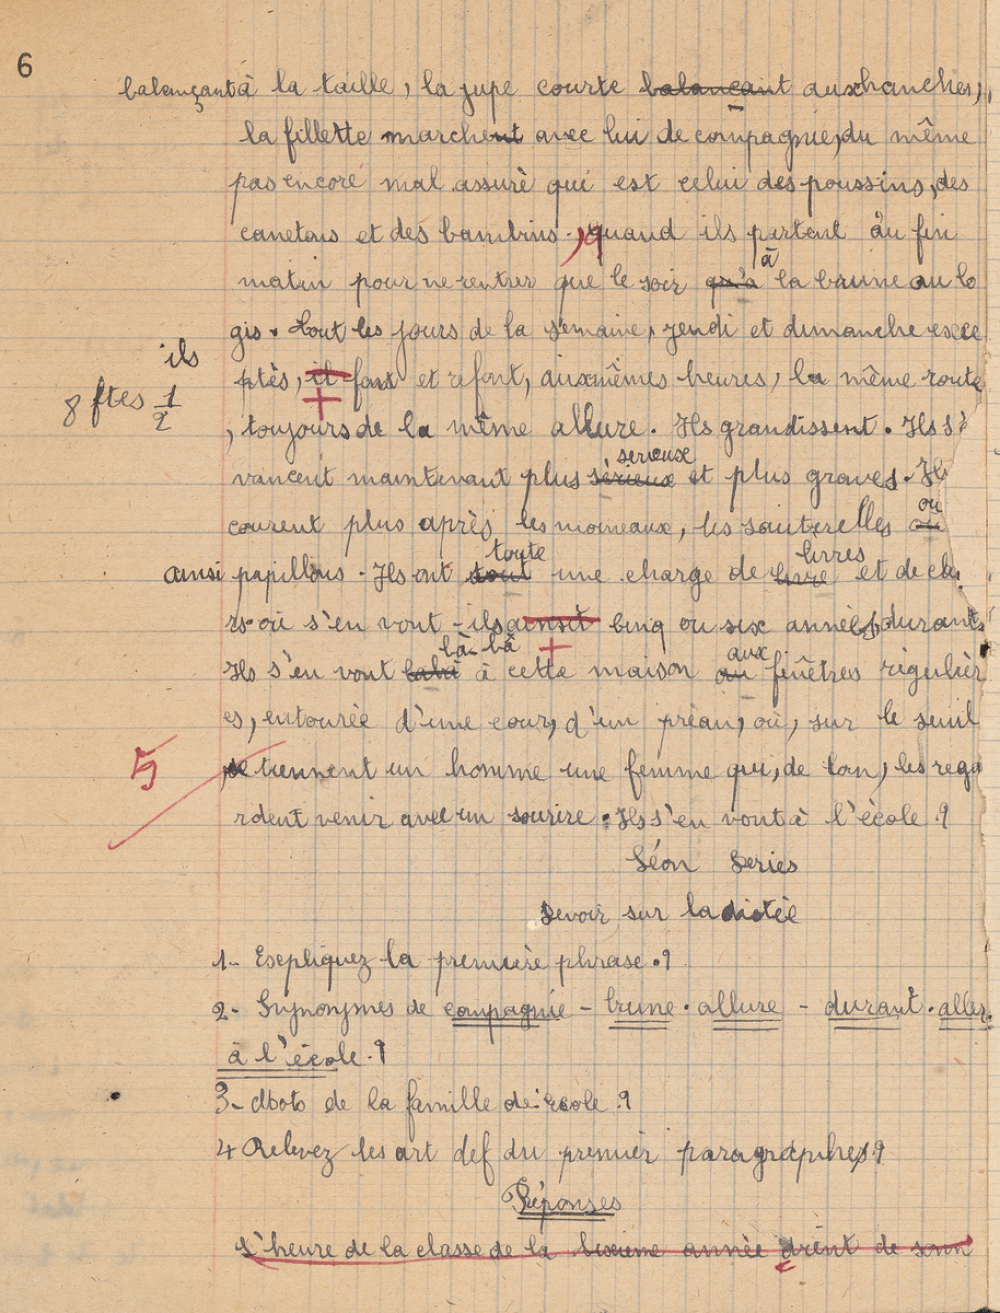 6
balançant à la taille, la jupe courte balancant aux hanches,
la fillette marchent avec lui de compagnie, du même
pas encore mal assuré qui est celui des poussins, des
canetons et des bambins, quand ils partent au fin
à
matin pour ne rentrer que le soir qu'à la brune au lo
gis. Tout les jours de la semaine, jeudi et dimanche exce
ils
ptés, il font et refont, aux mêmes heures, la même route
8 ftes 1/2
, toujours de la même allure. Ils grandissent. Ils s'
serieux
vancent maintenant plus sérieux et plus graves. Ils
ou
courent plus après les moineaux, les sauterelles au
toute livres
ainsi papillons. Ils ont tout une charge de livre et de
rs où s'en vont-ils ainsit cinq ou six années durant
là-bà aux
Ils s'en vont labà à cette maison au fenêtres régulièr
es, entourée d'une cour, d'un préau, où, sur le seuil
5
se tiennent un homme une femme qui, de loin, les rega
rdent venir avec un sourire. Ils s'en vont à l'école.
Léon Series
Devoir sur la dictée
1- Escpliquez la première phrase.
2- Synonymes de compagnie - brune. allure - durant. aller
à l'école.
3- Mots de la famille de: école
4 Relevez les art def du premier paragraphes
Réponses
L'heure de la classe de la année de